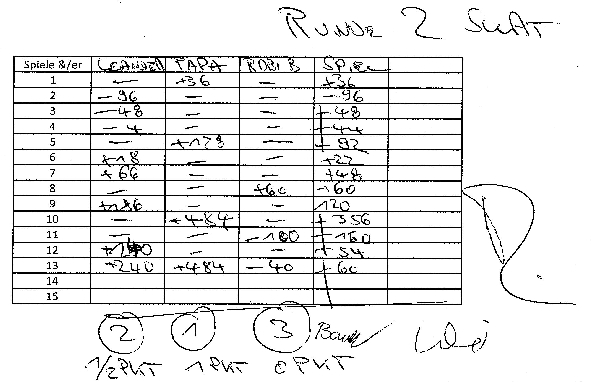 RUNDE 2 SKAT
Spiele &/er LEANDER PAPA ROBIB SPIEL
1 — +36 — +36
2 -96 — — -96
3 -48 — — -48
4 -4 — — -44
5 — +128 — + 92
6 +18 — — +22
7 +66 — — +48
8 — — +60 -60
9 +186 — — 120
10 — +484 — + 356
11 — — -100 -160
12 — — + 54
13 +240 +484 -40 + 60
14
15
2 1 3
1/2 PKT 1 PKT 0 PKT